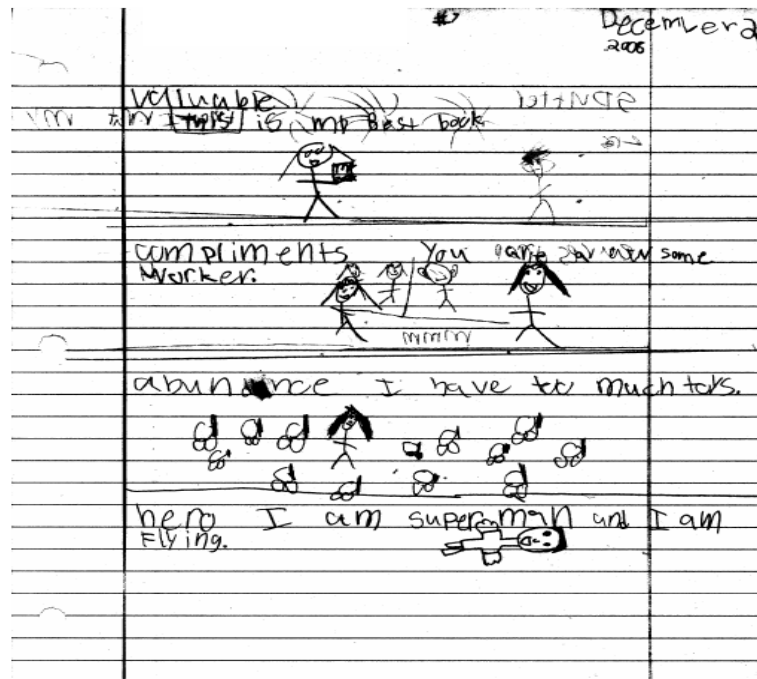 #7
Decemver 2
2006
valluable
is my Best book
compliments You some
Worker.
abunnce I have too much tors.
hero I am super man and I am
Flying.